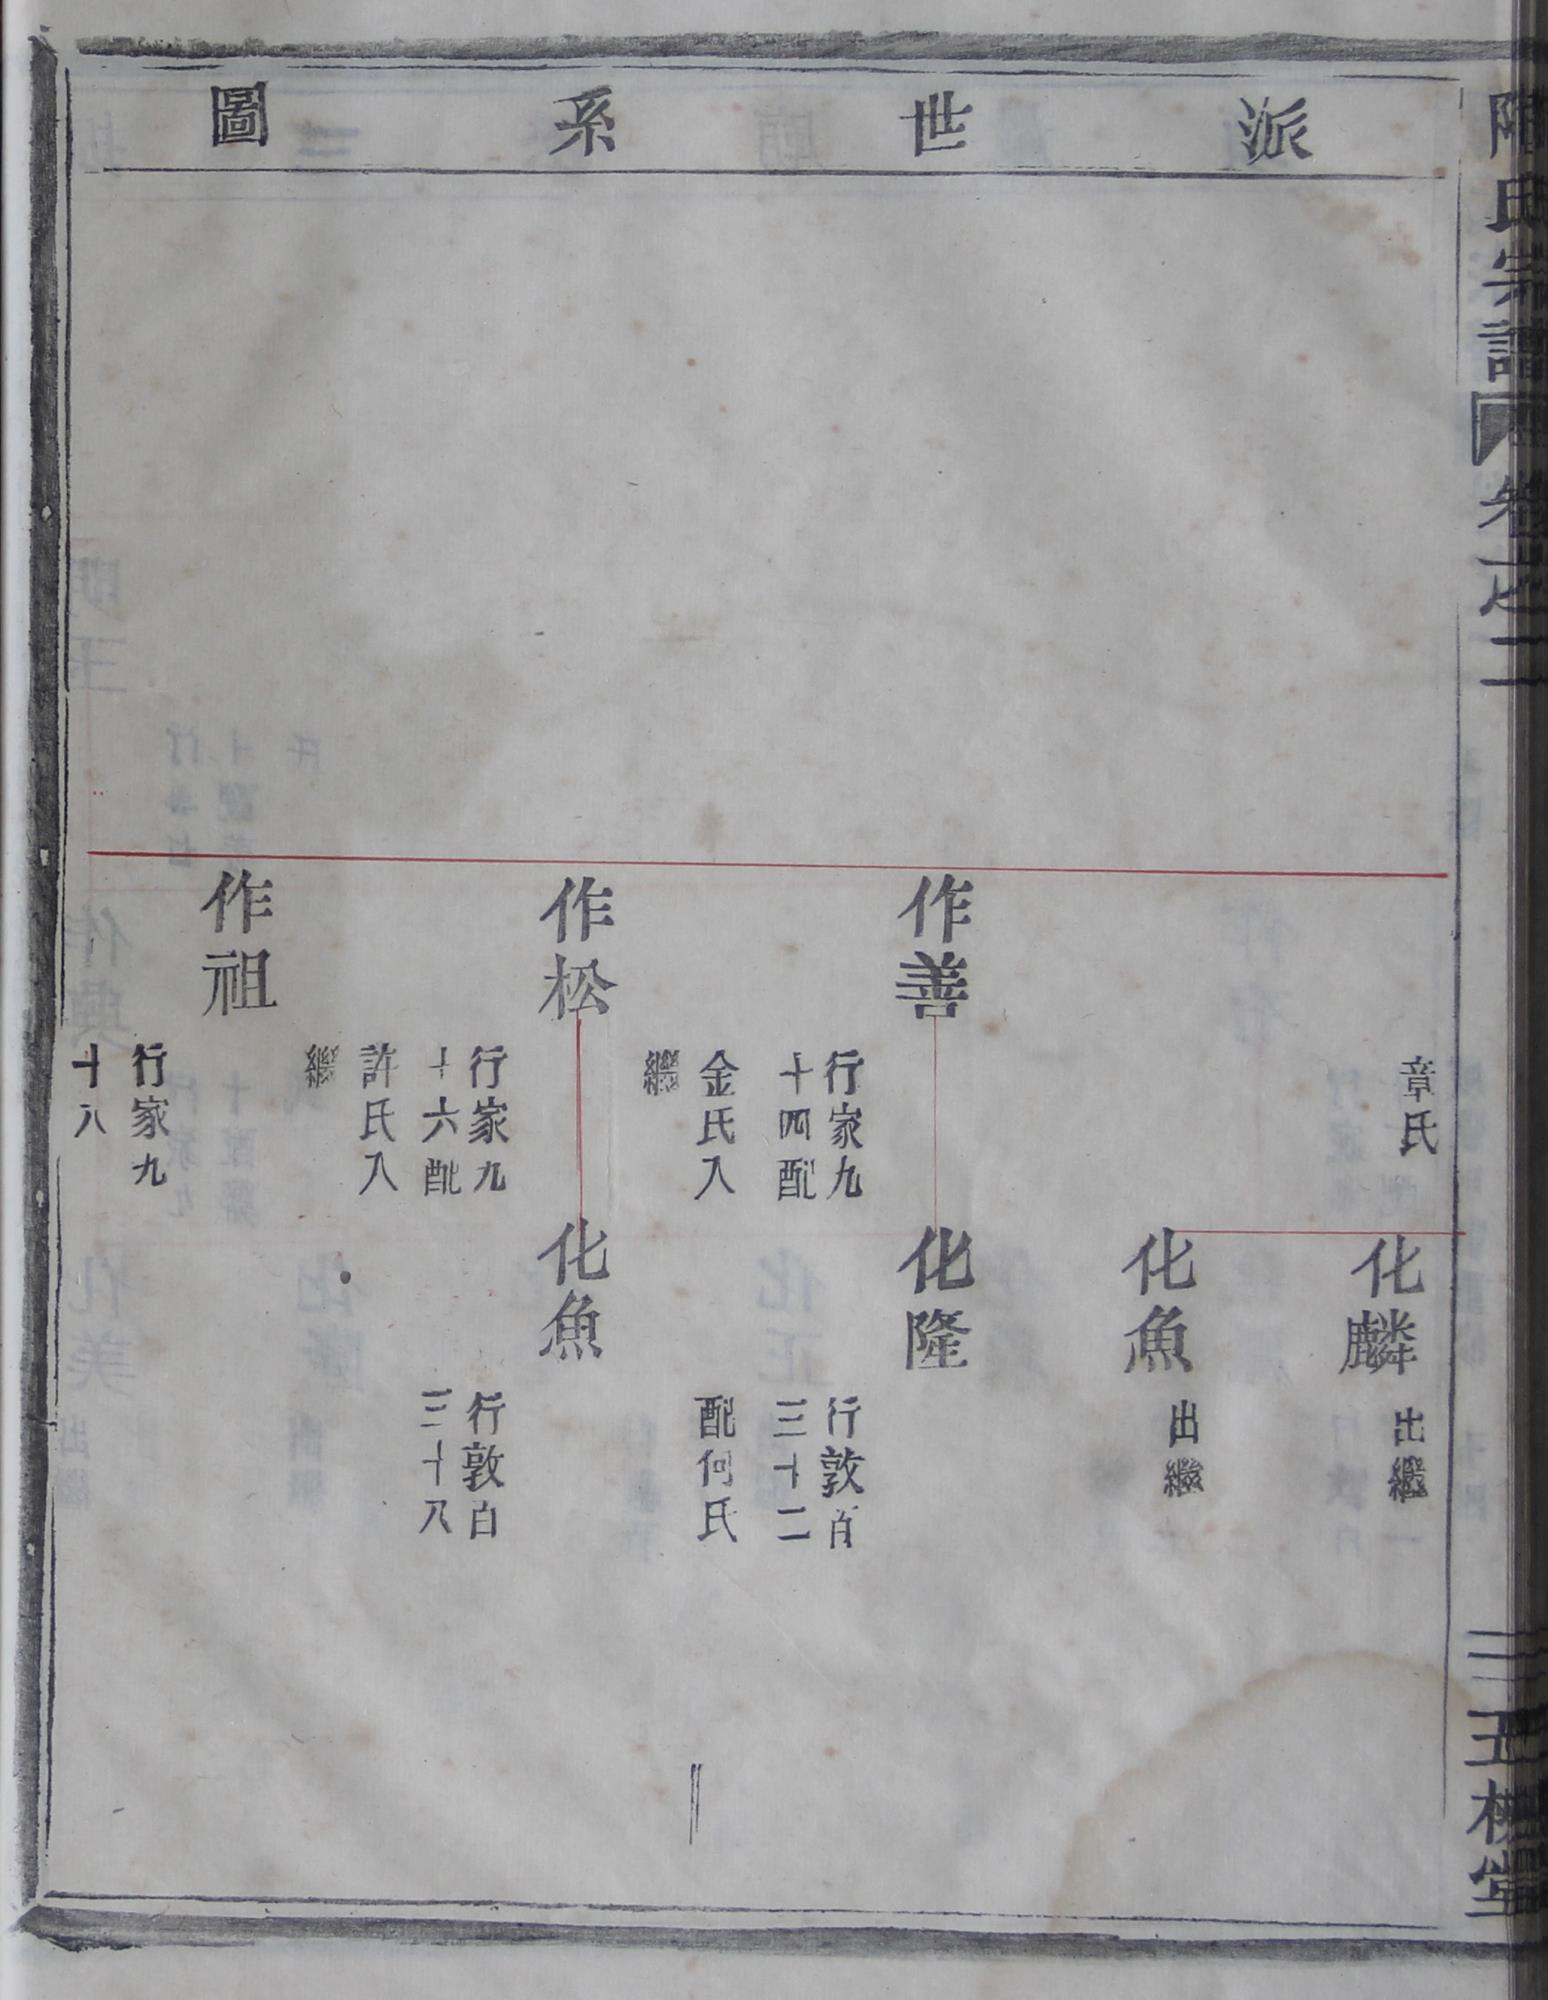 派世系圖
氏宗譜
卷之二
章氏
作善
行家九
十四配
金氏入
繼
作松
行家九
十六配
許氏入
繼
作祖
行家九
十八
化麟
出繼
化魚
出繼
化隆
行敦百
三十二
配何氏
化魚
行敦百
三十八
五桂堂